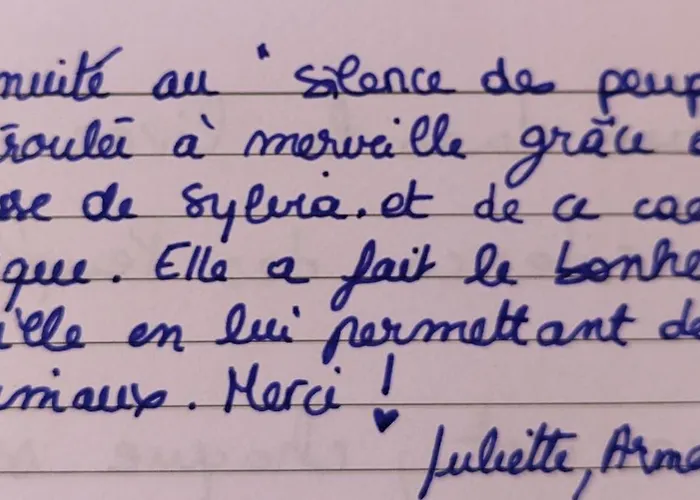 nuité au "silence des peup
éroulée à merveille grâce
se de Sylvia. et de ce ca
que. Elle a fait le bonhe
ille en lui permettant de
imaux. Merci !
Juliette, Arma